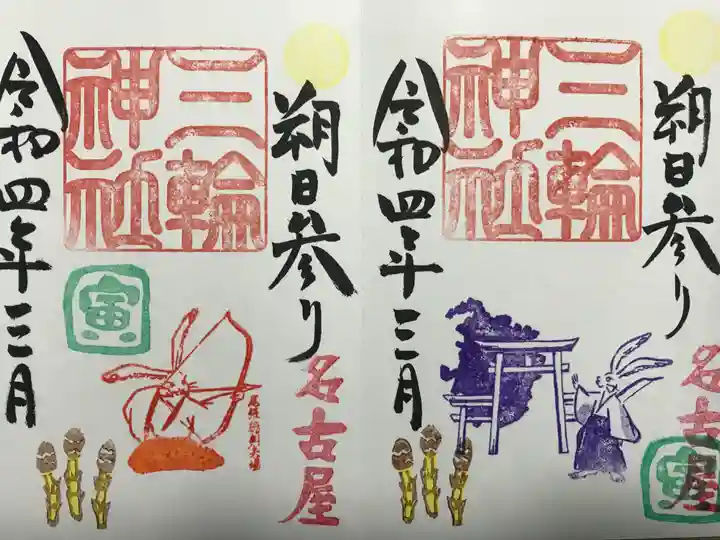 朔日参り
名古屋
三輪
神社
令和四年三月
寅
朔日参り
名古屋
三輪
神社
令和四年三月
寅